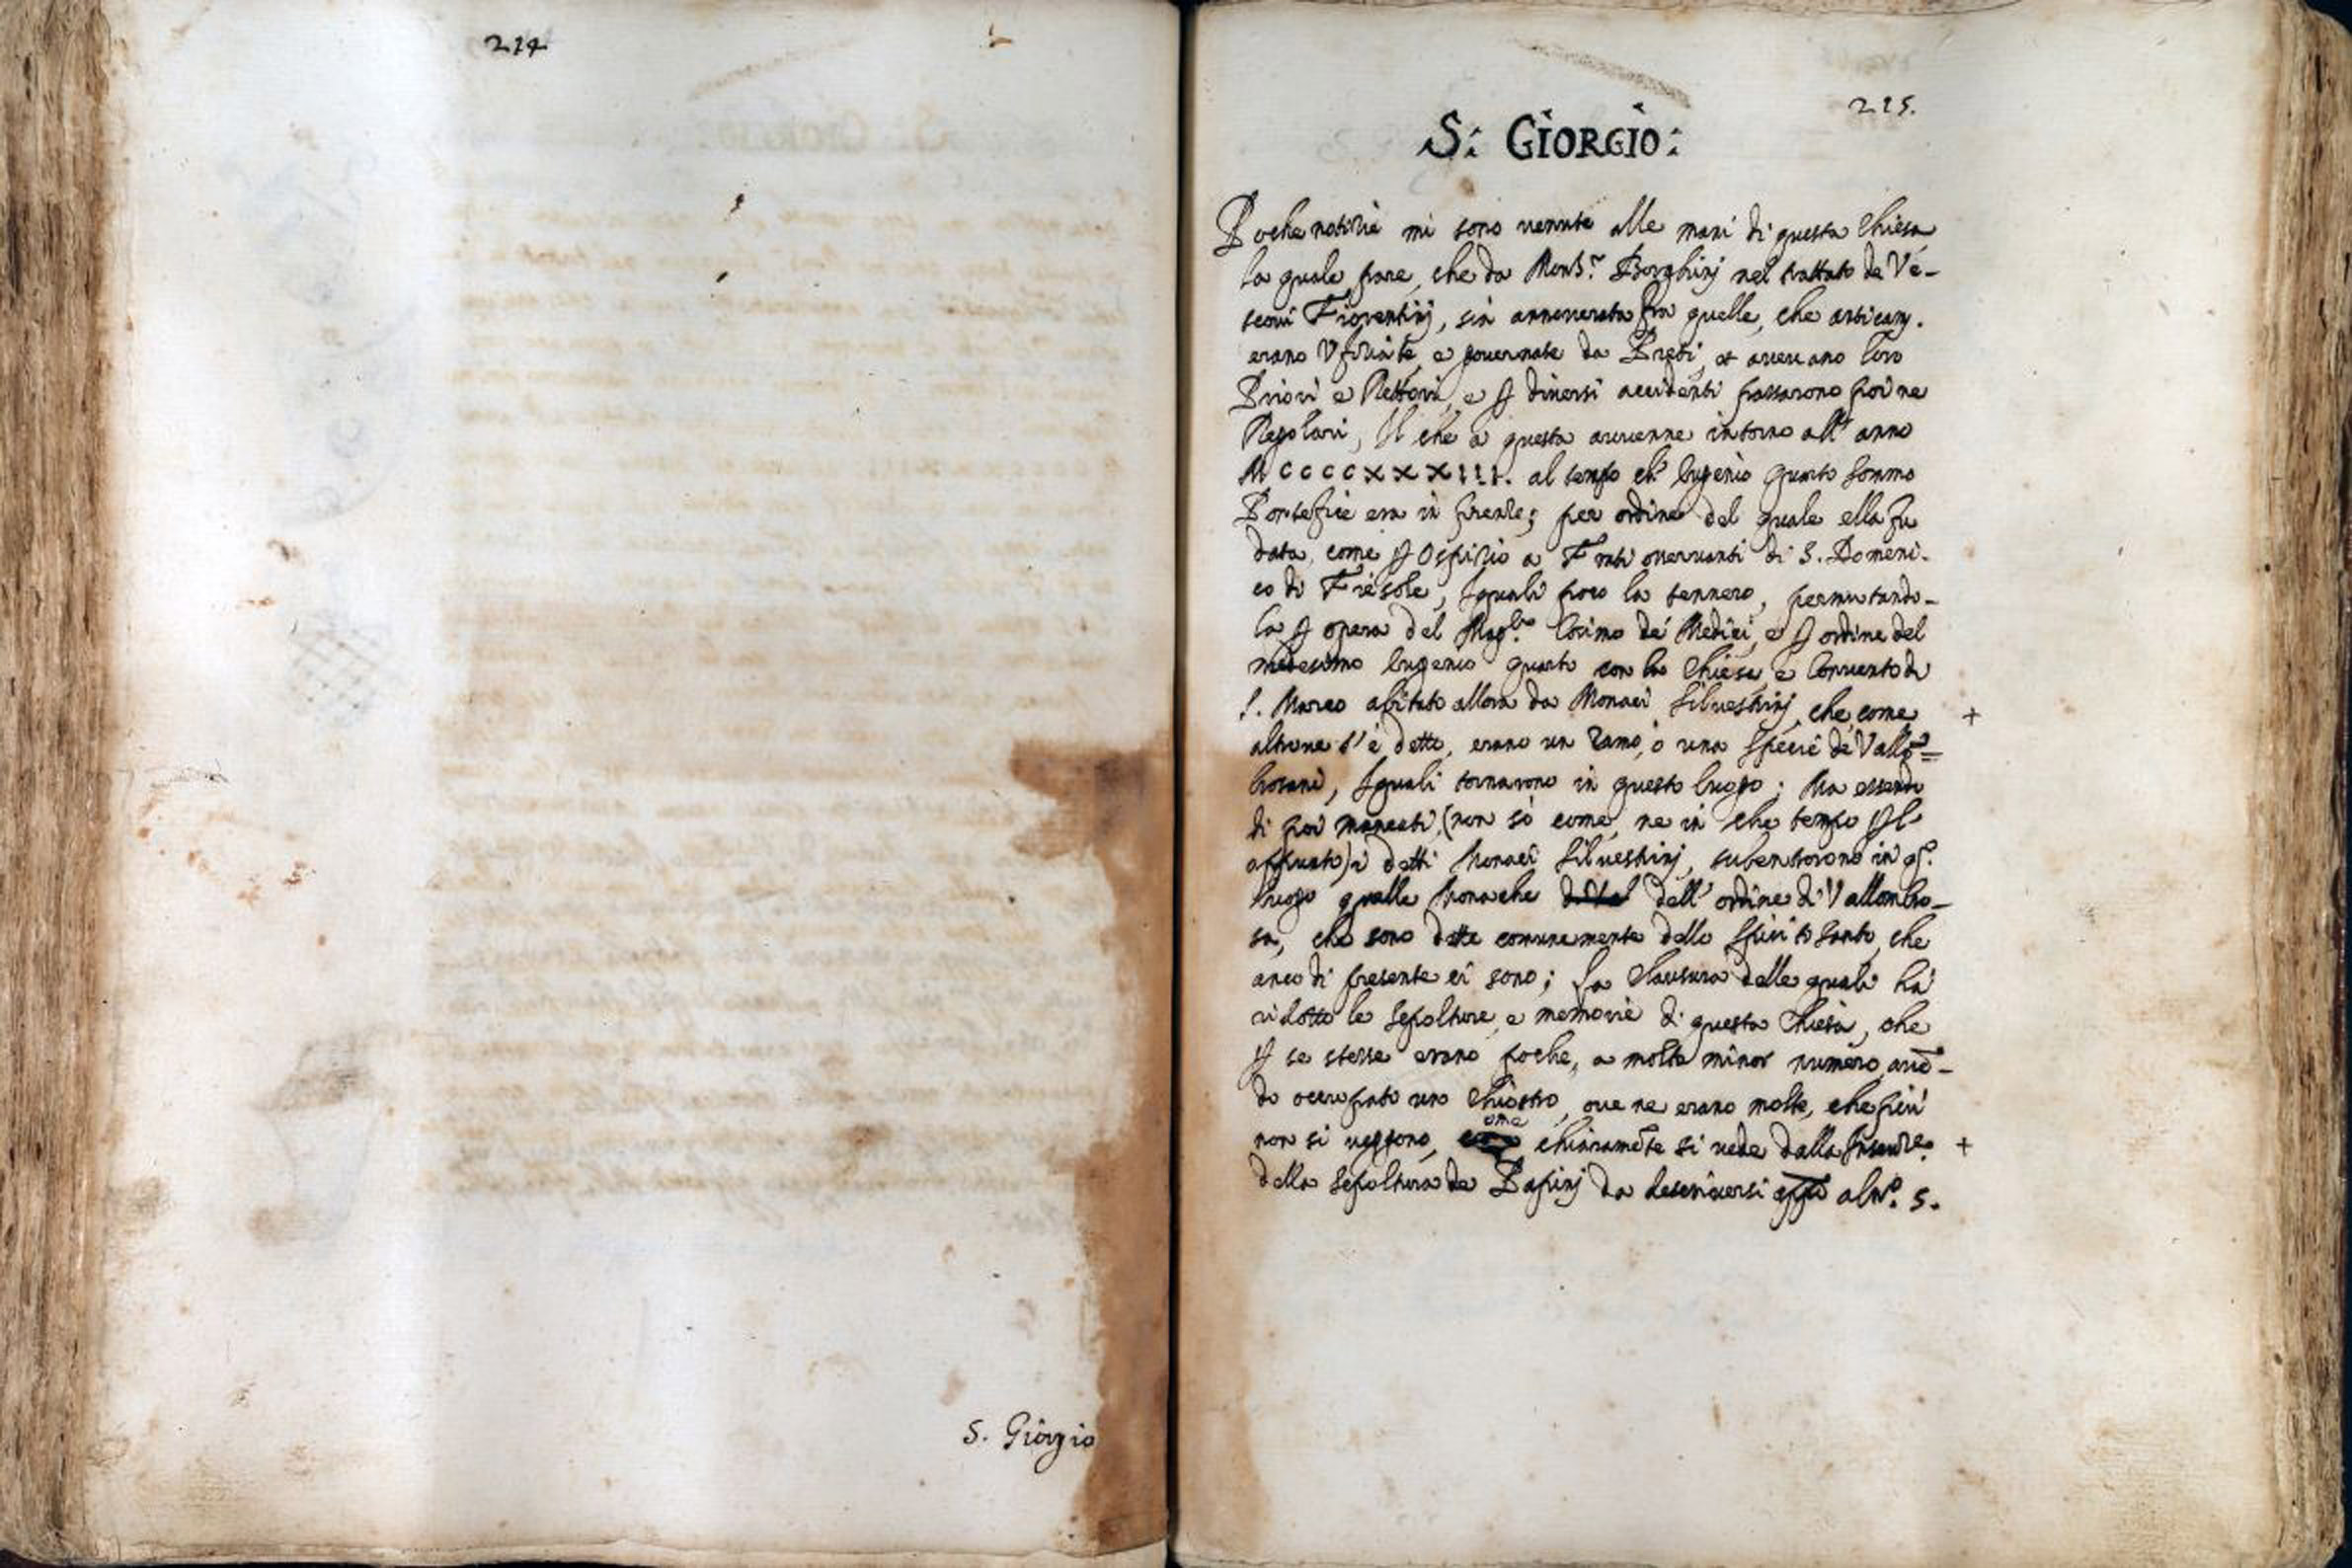 214
S. Giorgio
215.
S: GIORGIO:
Poche notizie mi sono venute alle mani di questa Chiesa
la quale pare, che da Mons.r Borghinj nel trattato de Ve-
scovi Fiorentinj, sia annoverata fra quelle, che anticam.
erano Ufiziate, e governate da Preti, et avevano loro
Priori e Rettori, e p diversi accidenti passarono poi ne
Regolari, Il che a questa avvenne intorno all' anno
MCCCCXXXIII. al tempo ch' Eugenio quarto sommo
Pontefice era in Firenze; per ordine del quale ella fu
data, come p Ospizio a Frati osservanti di S. Domeni-
co di Fiesole, Iquali poco la tennero, permutando-
la p opera del Mag.co Cosimo de' Medici, e p ordine del
medesimo Eugenio quarto con la Chiesa e Convento di
S. Marco abitato allora da Monaci Silvestrinj, che come +
altrove s'è detto, erano un ramo, o una spezie de Vallō=
brosani, Iquali tornarono in questo luogo; Ma essendo
di poi mancati, (non sò come, ne in che tempo p l'
appunto) i detti Monaci Silvestrinj, subentorono in q.o
luogo quelle Monache dell' ordine di Vallombro-
sa, che sono dette comunemente dello Spirito Santo, che
anco di presente ci sono; La Clausura delle quali hà
ridotto le sepolture, e memorie di questa Chiesa, che
p se stesse erano poche, a molto minor numero, avē-
do occupato uno Chiostro, ove ne erano molte, che più
non si veggono, come chiaramēte si vede dalla Inscriz.e +
della sepoltura de Papinj da descriversi app.o al N.o 5.